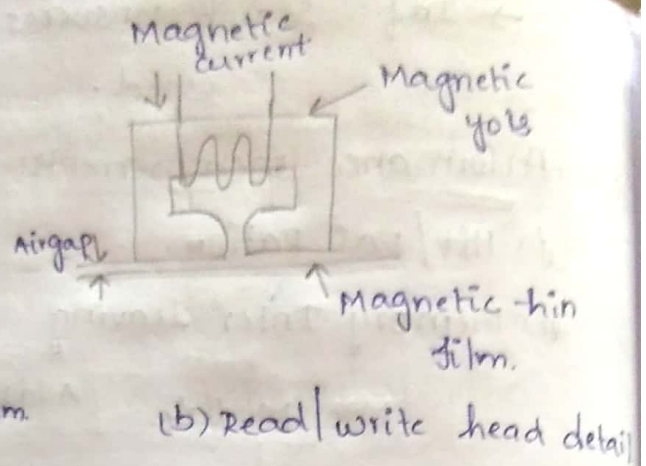 Magnetic
current
Magnetic
yoke
Airgap
Magnetic thin
film.
m.
(b) Read/write head detail